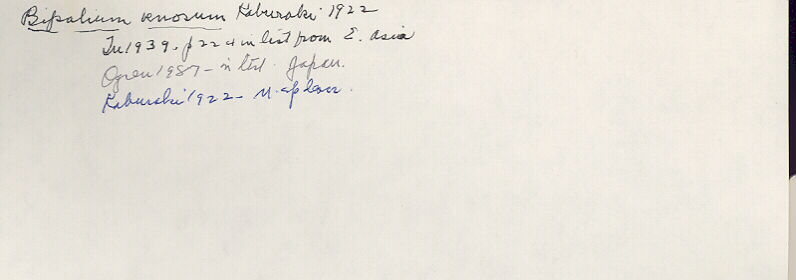 Bipalium venosum Kaburaki 1922
Tu 1939. p 224 in list from E. Asia
Ogren 1987 - in list. Japan.
Kaburaki 1922 - n. sp desc.